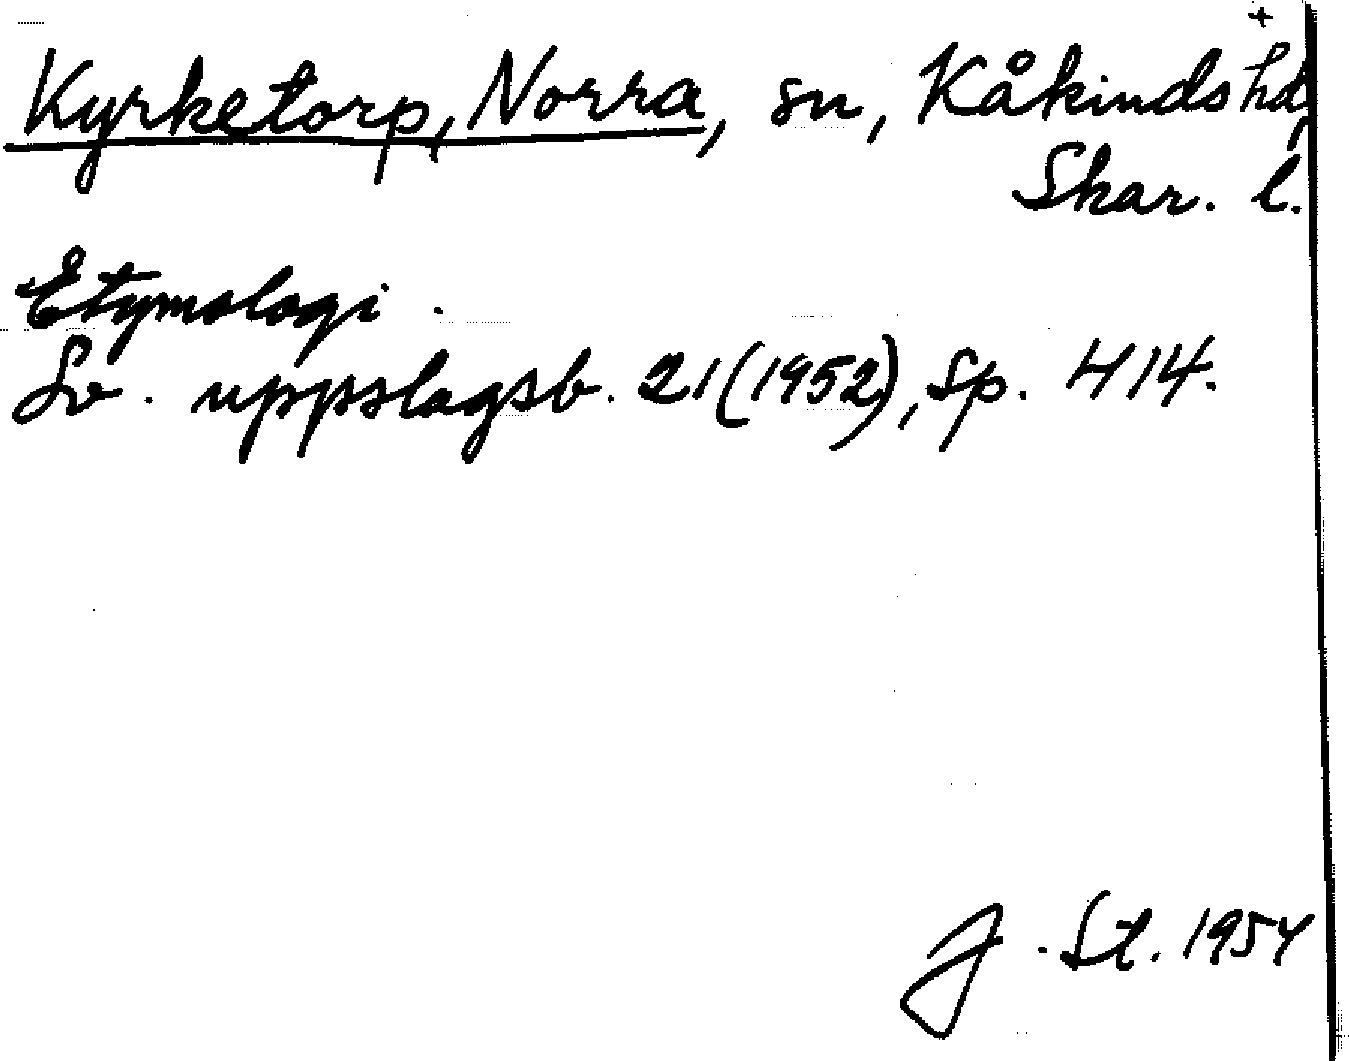 +
Kyrketorp, Norra, sn, Kåkinds hd,
Skar. l.
Etymologi.
Sv. uppslagsb. 21(1952), sp. 414.
J. St. 1954